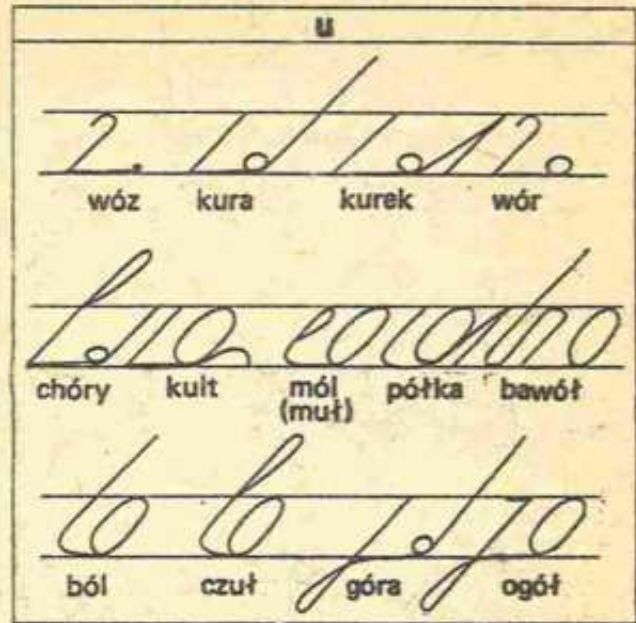 u
wóz kura kurek wór
chóry kult mól półka bawół
(muł)
ból czuł góra ogół